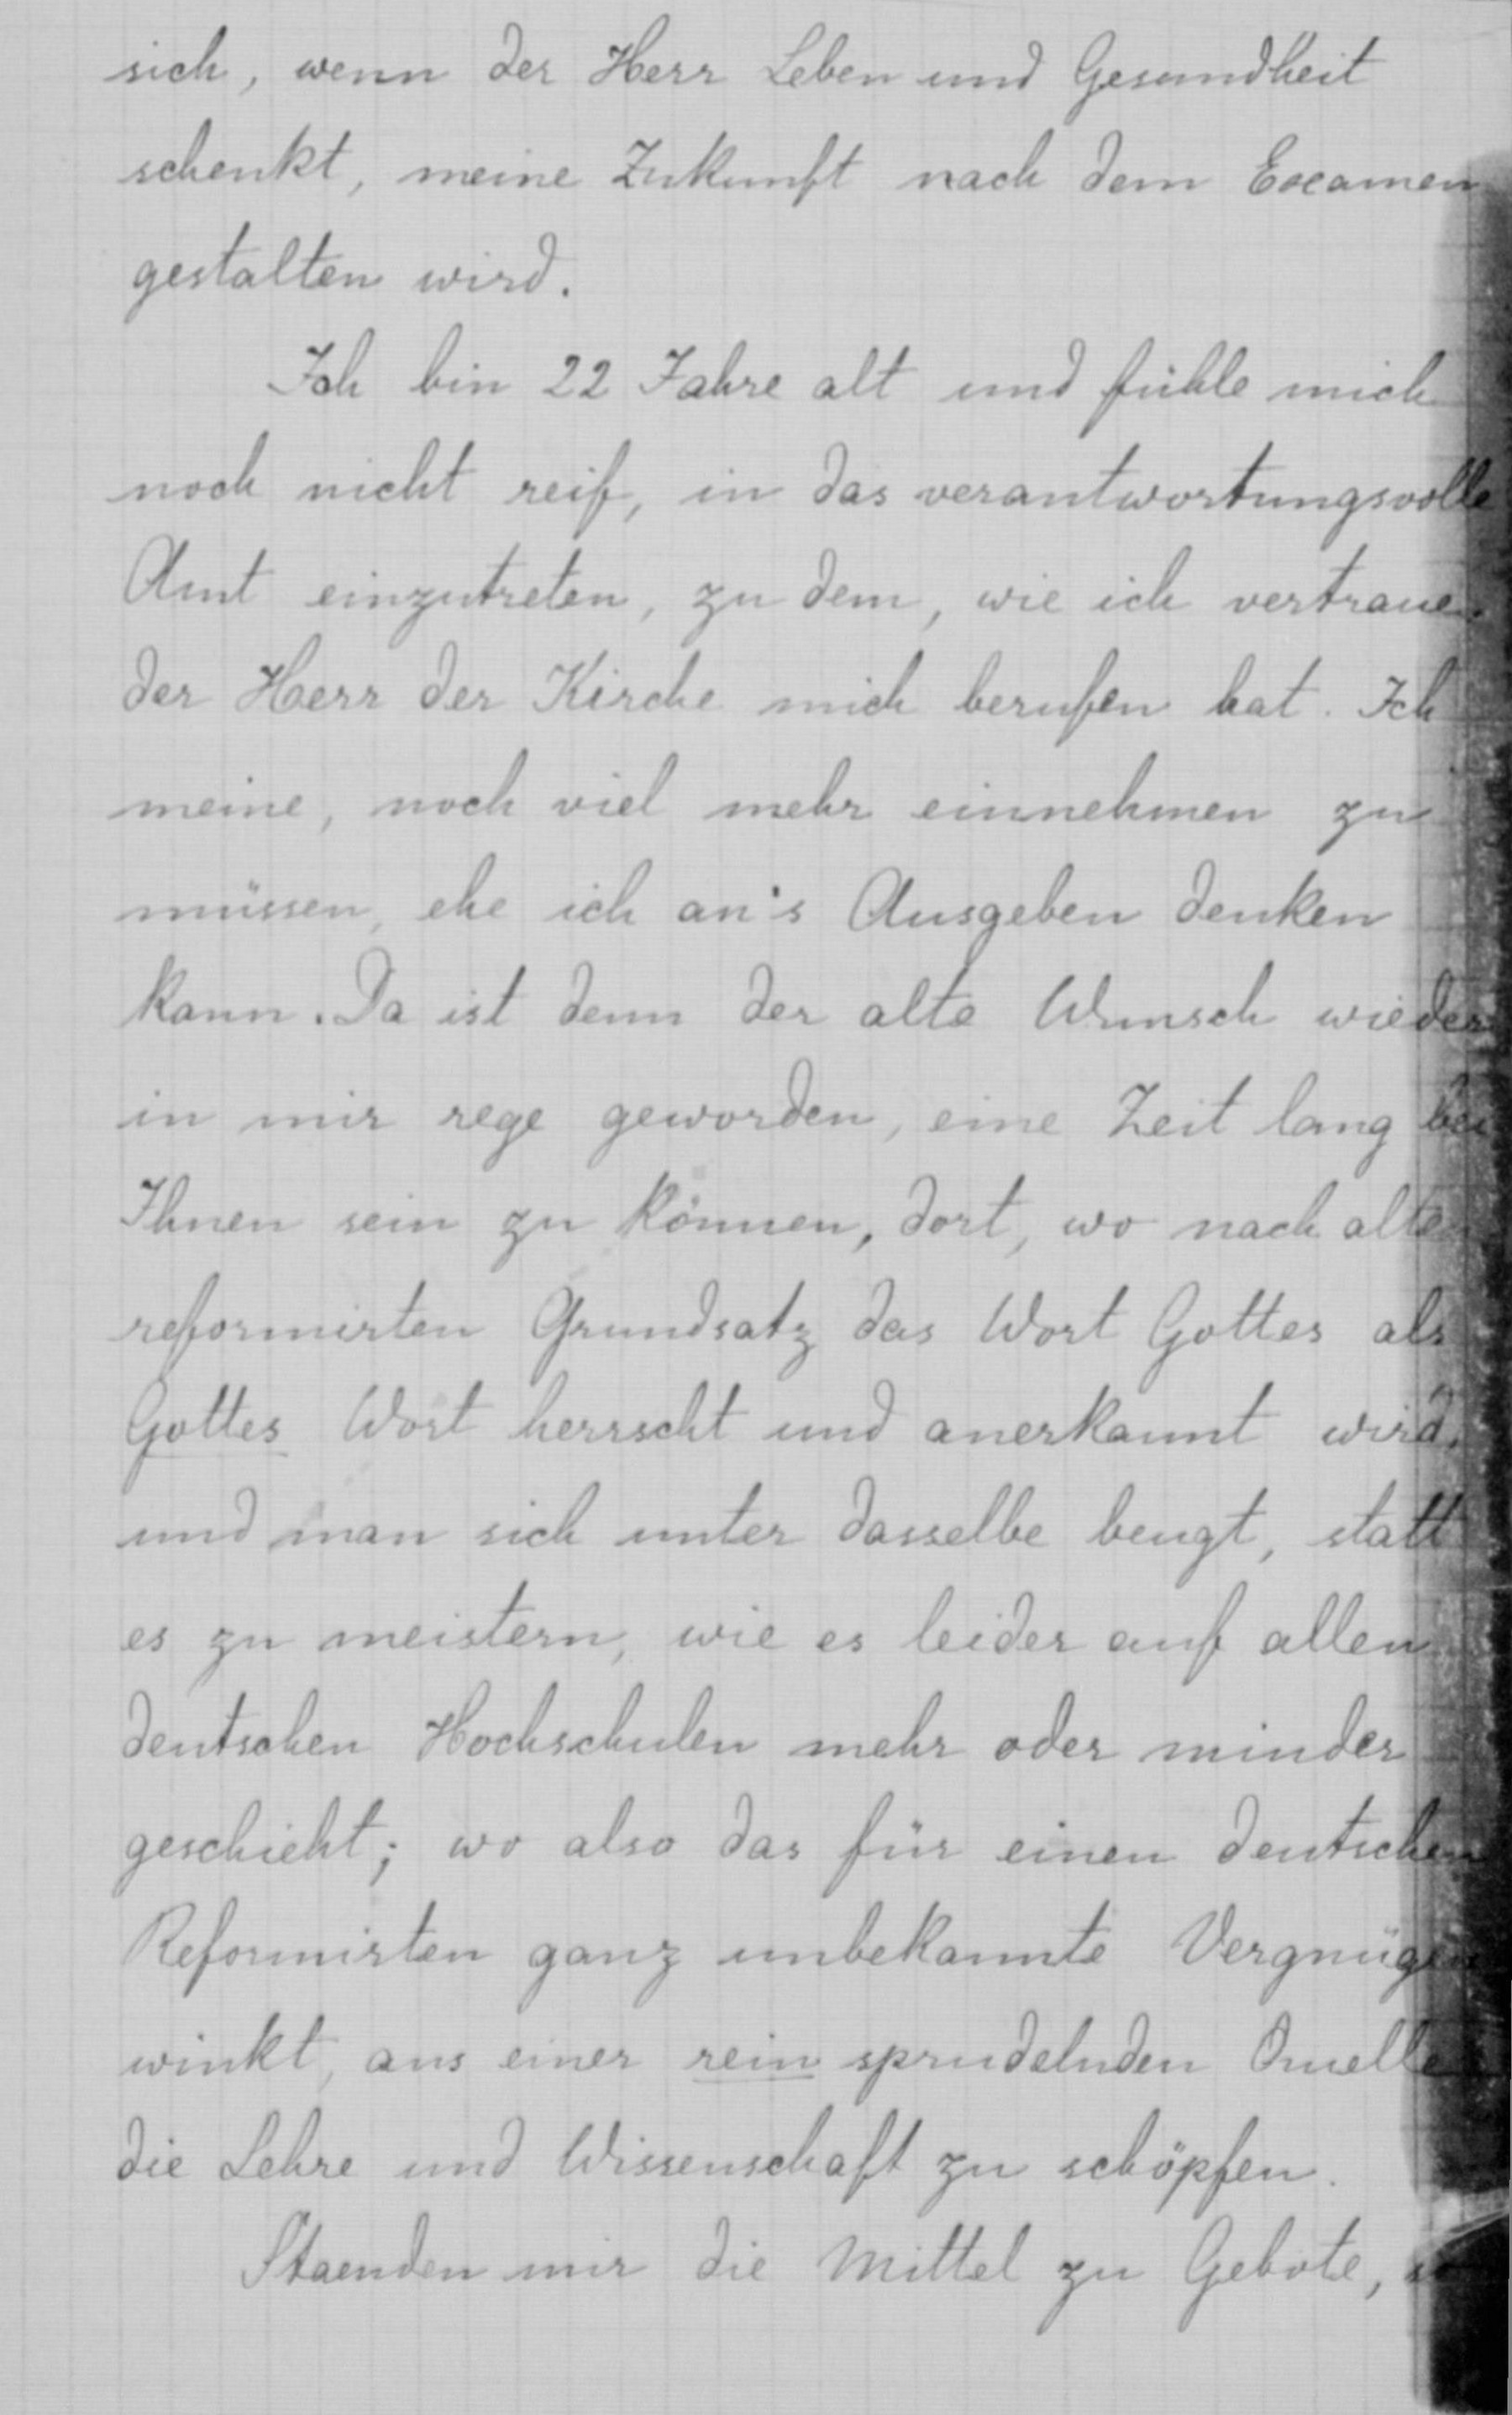 sich, wenn der Herr Leben und Gesundheit
schenkt, meine Zukunft nach dem Examen
gestalten wird.
Ich bin 22 Jahre alt und fühle mich
noch nicht reif, in das verantwortungsvolle
Amt einzutreten, zu dem, wie ich vertraue,
der Herr der Kirche mich berufen hat. Ich
meine, noch viel mehr einnehmen zu
müssen, ehe ich an's Ausgeben denken
kann. Da ist denn der alte Wunsch wieder
in mir rege geworden, eine Zeit lang bei
Ihnen sein zu können, dort, wo nach alten
reformirten Grundsatz das Wort Gottes als
Gottes Wort herrscht und anerkannt wird,
und man sich unter dasselbe beugt, statt
es zu meistern, wie es leider auf allen
deutschen Hochschulen mehr oder minder
geschieht; wo also das für einen deutschen
Reformirten ganz unbekannte Vergnügen
winkt, aus einer rein sprudelnden Quelle
die Lehre und Wissenschaft zu schöpfen.
Staenden mir die Mittel zu Gebote, so